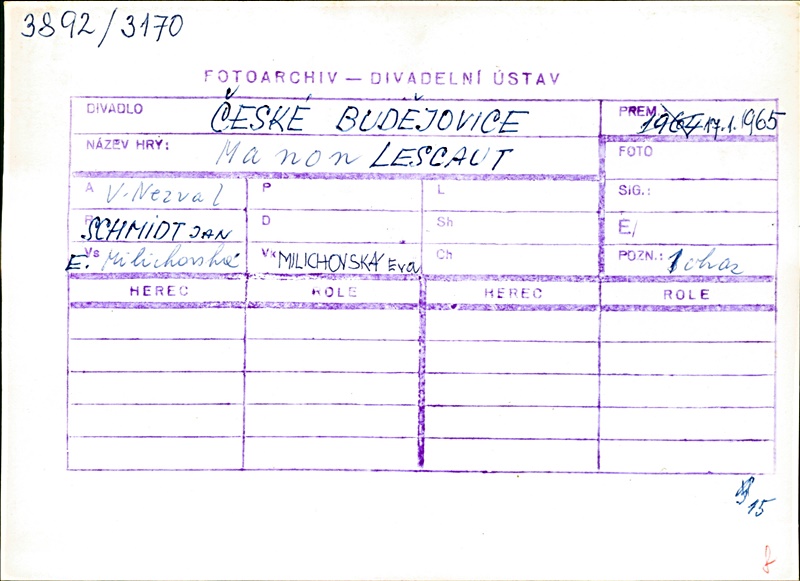 3892/3170
FOTOARCHIV — DIVADELNÍ ÚSTAV
DIVADLO ČESKÉ BUDĚJOVICE PREM. 1964 17.1.1965
NÁZEV HRY: Manon LESCAUT FOTO
A V. Nezval P L SIG.:
R SCHMIDT JAN D Sh E/
Vs E. Milichovská Vk MILICHOVSKÁ Eva Ch POZN.: 1 obraz
HEREC ROLE HEREC ROLE
15